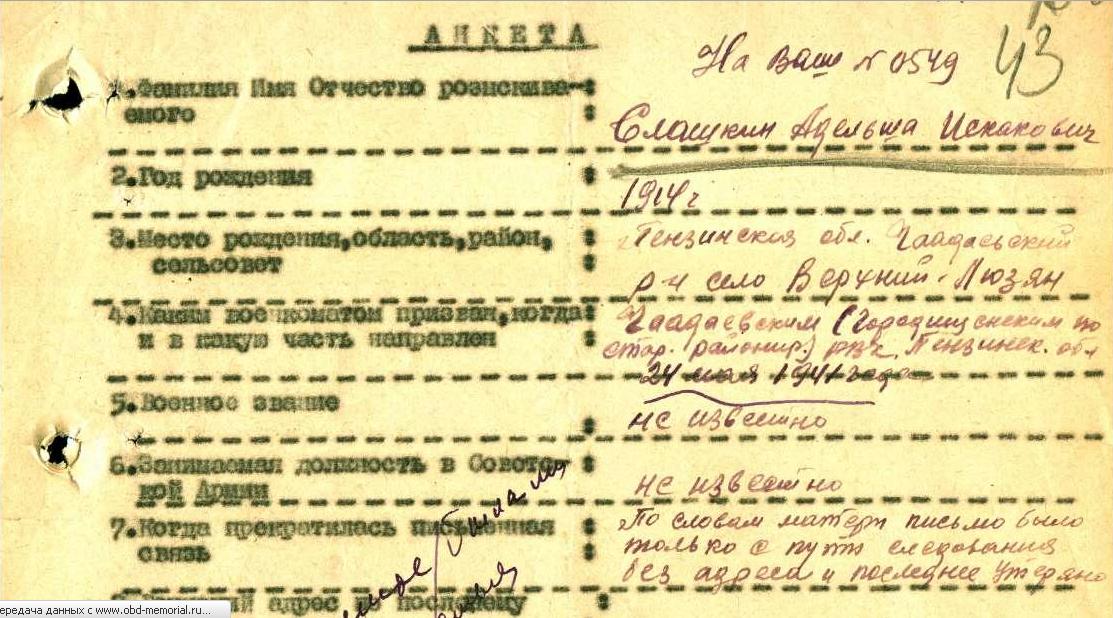 АНКЕТА
На Ваш № 0549
43
1.Фамилия Имя Отчество розискива-:
емого
Слашкин Адельша Искакович
2.Год рождения :
1914 г
3.Место рождения,область,район, :
сельсовет :
Пензинская обл. Чаадаевский
р-н село Верхний-Люзян
4.Каким военкоматом призван,когда:
и в какую часть направлен :
Чаадаевским (Городищенским по
стар. районир.) рвк. Пензинск. обл
24 мая 1941 года
5.Военное звание :
не известно
6.Занимаемая должность в Советс- :
кой Армии :
не известно
7.Когда прекратилась письменная :
связь :
По словам матери письмо было
только с пути следования
без адреса и последнее утеряно
адрес по последнему :
ередача данных с www.obd-memorial.ru...